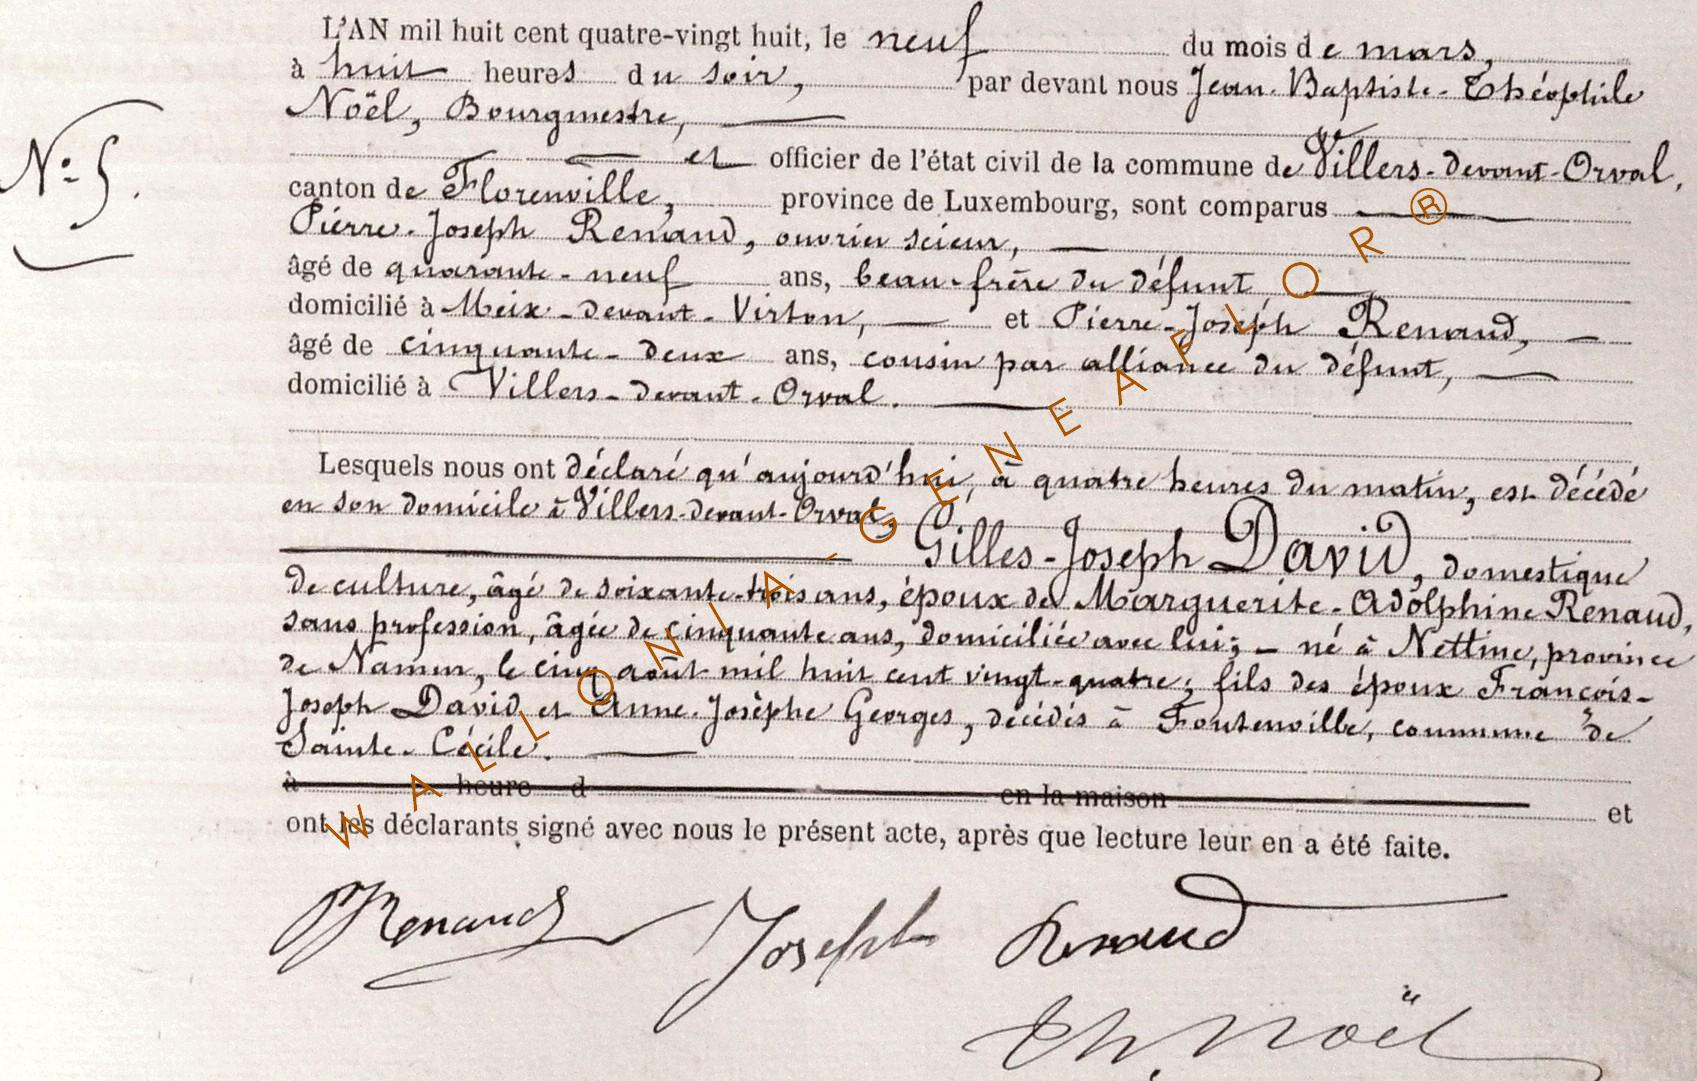 L'AN mil huit cent quatre-vingt huit, le neuf du mois de mars,
à huit heures du soir, par devant nous Jean-Baptiste-Théophile
Noël, Bourgmestre,
et officier de l'état civil de la commune de Villers-devant-Orval,
N° 5.
canton de Florenville, province de Luxembourg, sont comparus
Pierre-Joseph Renaud, ouvrier scieur,
âgé de quarante-neuf ans, beau-frère du défunt,
domicilié à Meix-devant-Virton, et Pierre-Joseph Renaud,
âgé de cinquante-deux ans, cousin par alliance du défunt,
domicilié à Villers-devant-Orval.
Lesquels nous ont déclaré qu'aujourd'hui, à quatre heures du matin, est décédé
en son domicile à Villers-devant-Orval,
Gilles-Joseph David, domestique
de culture, âgé de soixante-trois ans, époux de Marguerite-Adolphine Renaud,
sans profession, âgée de cinquante ans, domiciliée avec lui; - né à Nettine, province
de Namur, le cinq août mil huit cent vingt-quatre; fils des époux François-
Joseph David et Anne-Josèphe Georges, décédés à Fontenoille, commune de
Sainte-Cécile.
à heure d en la maison et
ont les déclarants signé avec nous le présent acte, après que lecture leur en a été faite.
PRenaud Joseph Renaud
Th. Noël
WALLONIA-GENEAFLOR®